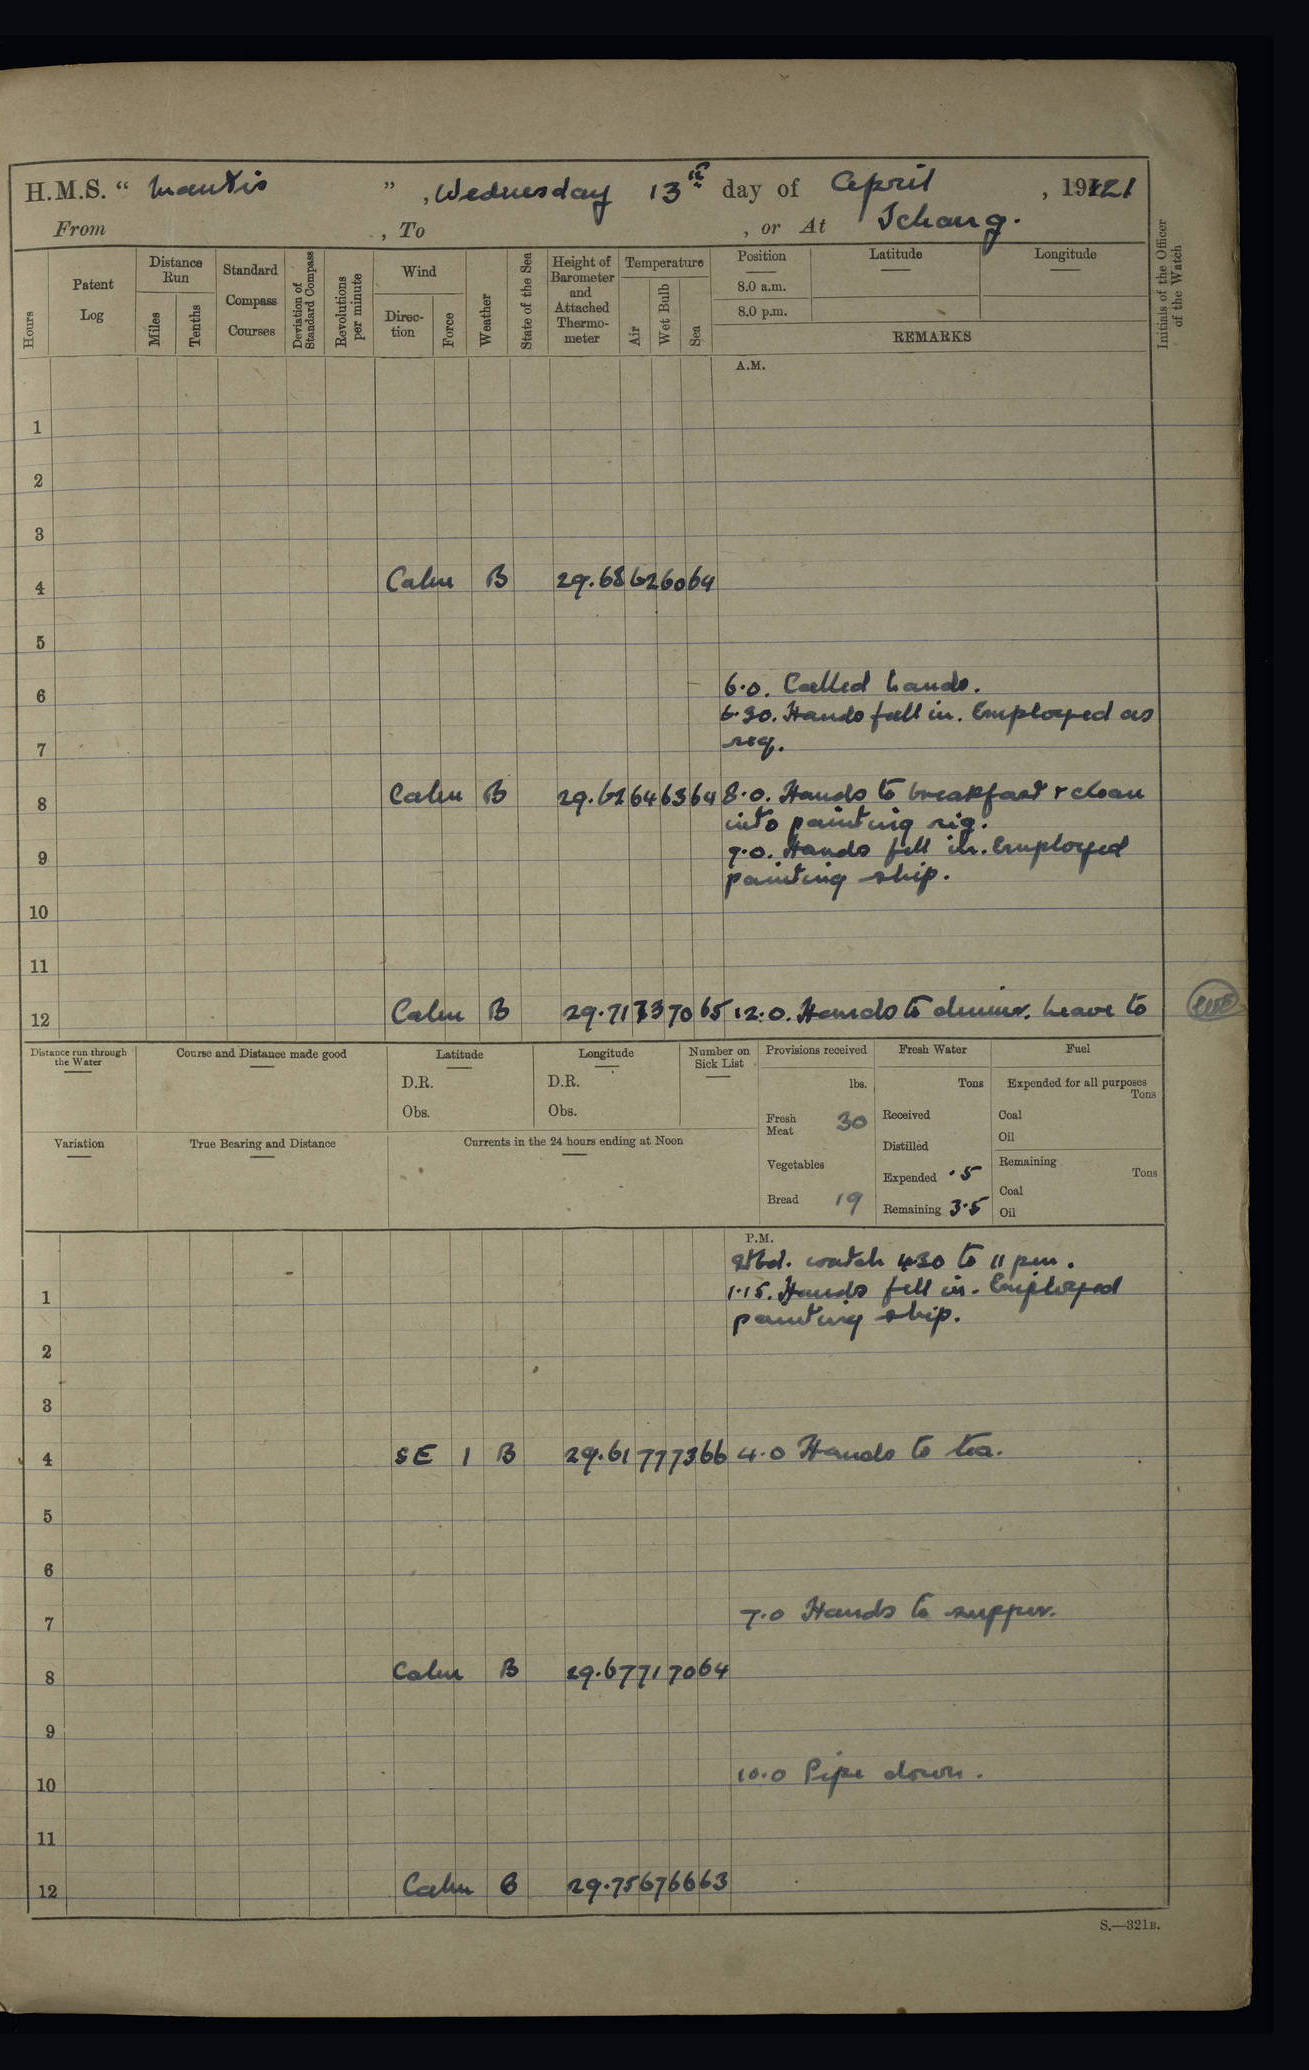 H.M.S. “ Mantis ” , Wednesday 13th day of April , 1921
From , To , or At Ichang.
Hours
Patent Log
Distance Run
Miles
Tenths
Standard Compass Courses
Deviation of Standard Compass
Revolutions per minute
Wind
Direc- tion
Force
Weather
State of the Sea
Height of Barometer and Attached Thermo- meter
Temperature
Air
Wet Bulb
Sea
Position
8.0 a.m.
8.0 p.m.
Latitude
Longitude
REMARKS
Initials of the Officer of the Watch
A.M.
1
2
3
4 Calm B 29.68 62 60 64
5
6 6.0. Called hands.
6.30. Hands fell in. Employed as
7 req.
8 Calm B 29.62 64 63 64 8.0. Hands to breakfast & clean
into painting rig.
9 9.0. Hands fell in. Employed
painting ship.
10
11
12 Calm B 29.71 73 70 65 12.0. Hands to dinner. Leave to
Distance run through the Water
Course and Distance made good
Latitude
D.R.
Obs.
Longitude
D.R.
Obs.
Number on Sick List
Provisions received
lbs.
Fresh Meat 30
Vegetables
Bread 19
Fresh Water
Tons
Received
Distilled
Expended .5
Remaining 3.5
Fuel
Expended for all purposes
Tons
Coal
Oil
Remaining
Tons
Coal
Oil
Variation
True Bearing and Distance
Currents in the 24 hours ending at Noon
P.M.
Stbd. watch 430 to 11 pm.
1 1.15. Hands fell in. Employed
painting ship.
2
3
4 SE 1 B 29.61 77 73 66 4.0 Hands to tea.
5
6
7 7.0 Hands to supper.
8 Calm B 29.67 71 70 64
9
10 10.0 Pipe down.
11
12 Calm B 29.75 67 66 63
S.—321B.